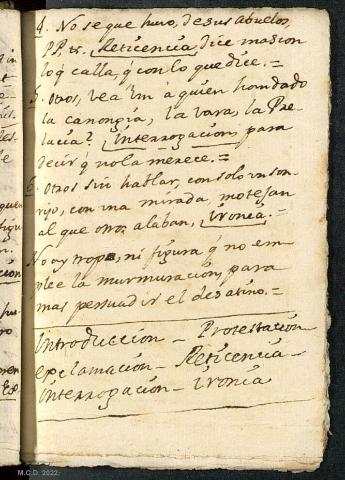 4. No se que huvo, de sus abuelos,
PP. &c. Reticencia, dice mas con
lo q̃ calla, q̃ con lo que dice.=
5. Otros, vea Vm à quien han dado
la canongia, la vara, la Pre
lacia? interrogacion, para
decir q̃ no la merece.=
6. Otros sin hablar, con solo un son
rijo, con una mirada, motejan
al que otros alaban, ironia.=
No ay tropo, ni figura q̃ no em
plee la murmuracion, para
mas persuadir el desatino.=
introduccion - Protestacion
exclamacion - Reticencia -
interrogacion - ironia
M.C.D. 2022